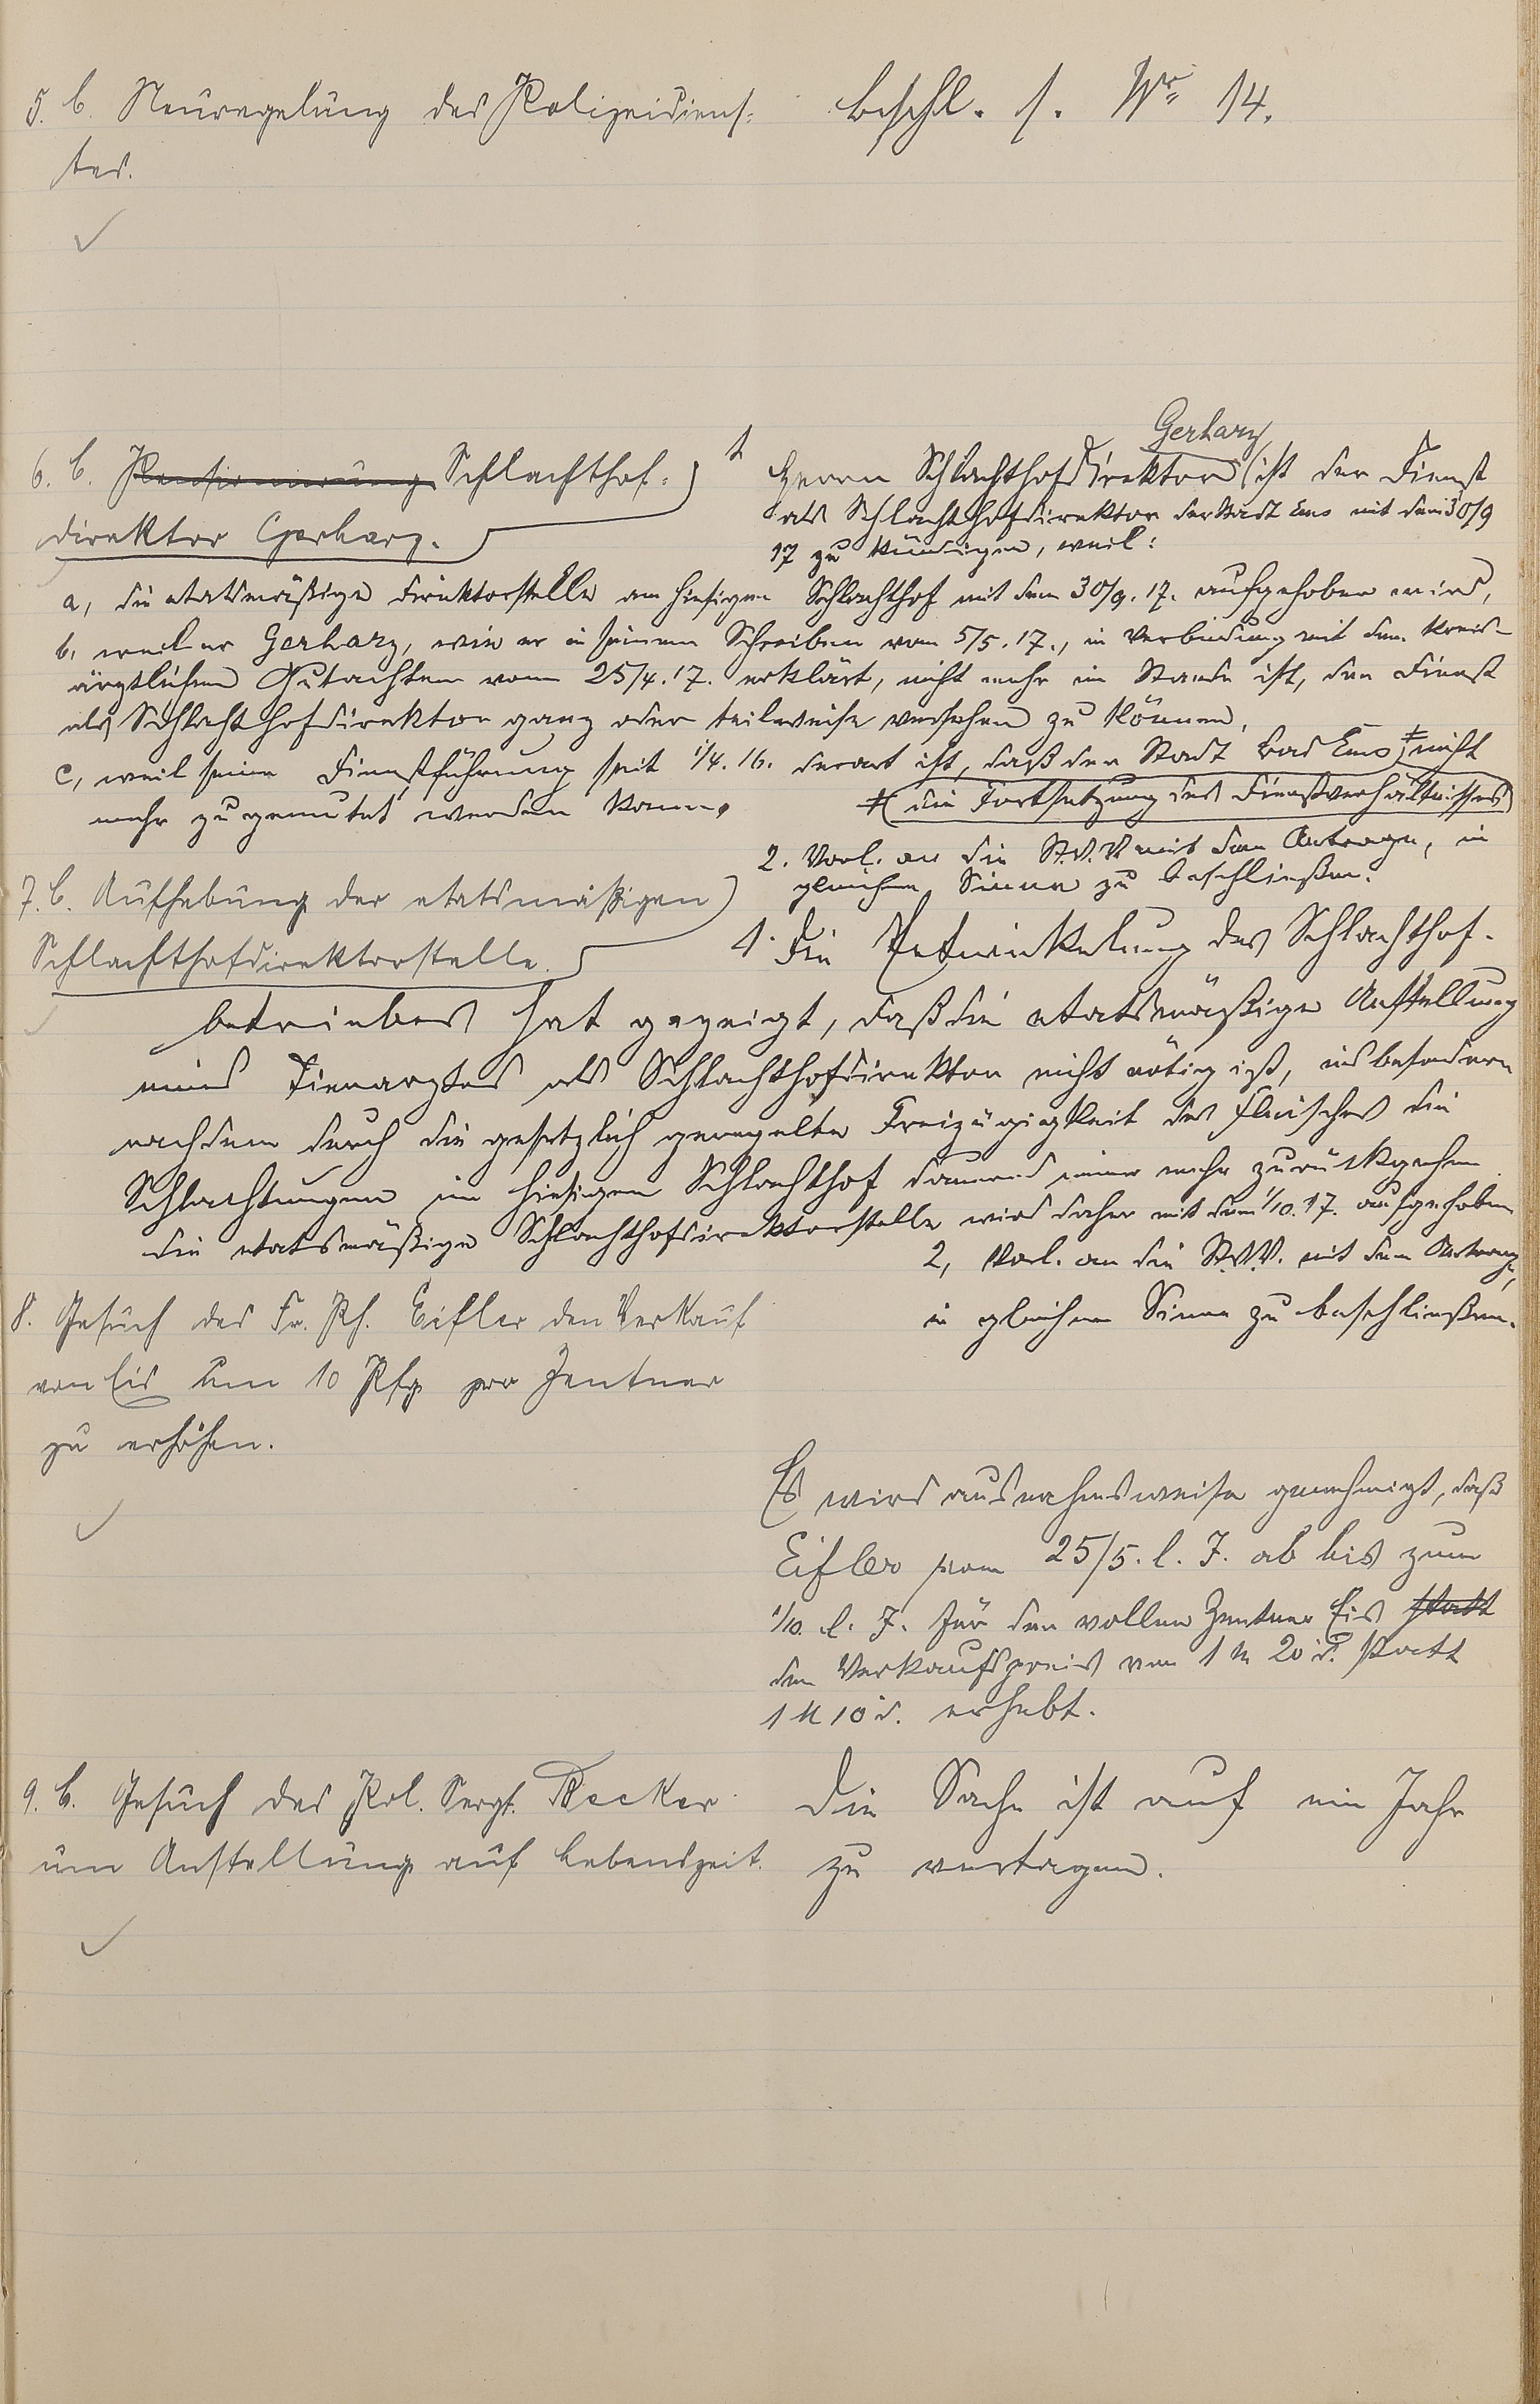 5. b. Neuregelung des Polizeidiens-
tes.
Beschl. s. Nr. 14.
6. b. Pensionierung Schlachthof-
direktor Gerharz.
1 Herrn Schlachthofdirektor Gerharz ist der Dienst
als Schlachthofdirektor der Stadt Ems mit dem 30/9
17 zu kündigen, weil:
a, die etatsmäßige Direktorstelle am hiesigen Schlachthof mit dem 30/9. 17. aufgehoben wird,
b, weil er Gerharz, wie er in seinem Schreiben vom 5/5. 17., in Verbindung mit dem kreis-
ärztlichen Gutachten vom 25/4. 17. erklärt, nicht mehr im Stande ist, den Dienst
als Schlachthofdirektor ganz oder teilweise versehen zu können,
c, weil seine Dienstführung seit 1/4. 16. derart ist, daß der Stadt Bad Ems ≠ nicht
mehr zugemutet werden kann.
≠ die Fortsetzung des Dienstverhältnisses
2. Vorl. an die St.V.V. mit dem Antrage, in
gleichem Sinne zu beschließen.
7. b. Aufhebung der etatsmäßigen
Schlachthofdirektorstelle.
1. Die Entwickelung des Schlachthof-
betriebes hat gezeigt, daß die etatsmäßige Anstellung
eines Tierarztes als Schlachthofdirektor nicht nötig ist, insbesondere
nachdem durch die gesetzlich geregelte Freizügigkeit des Fleisches die
Schlachtungen im hiesigen Schlachthof dauernd immer mehr zurückgehen
die etatsmäßige Schlachthofdirektorstelle wird daher mit dem 1/10. 17. aufgehoben
2, Vorl. an die St.V.V. mit dem Antrage,
in gleichem Sinne zu beschließen.
8. Gesuch des Fr. Ph. Eifler den Verkauf
von Eis um 10 Pfg pro Zentner
zu erhöhen.
Es wird ausnahmsweise genehmigt, daß
Eifler vom 25/5. l. J. ab bis zum
1/10. l. J. für den vollen Zentner Eis statt
den Verkaufspreis von 1 M 20 d. statt
1 M 10 d. erhebt.
9. b. Gesuch des Pol. Sergt. Becker
um Anstellung auf Lebenszeit.
Die Sache ist auf ein Jahr
zu vertagen.